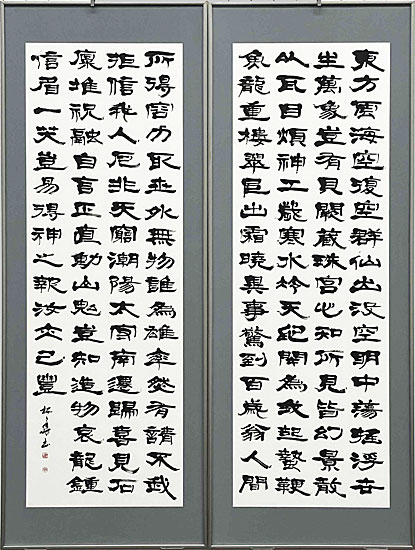 東方雲海空復空群仙出沒空明中蕩搖浮世
生萬象豈有貝闕藏珠宮心知所見皆幻景敢
以耳目煩神工歲寒水冷天地閉為我起蟄鞭
魚龍重樓翠阜出霜曉異事驚到百歲翁人間
所得容力取世外無物誰為雄率然有請不我
拒信我人厄非天窮潮陽太守南遷歸喜見石
廩堆祝融自言正直動山鬼豈知造物哀龍鍾
信眉一笑豈易得神之報汝亦已豐